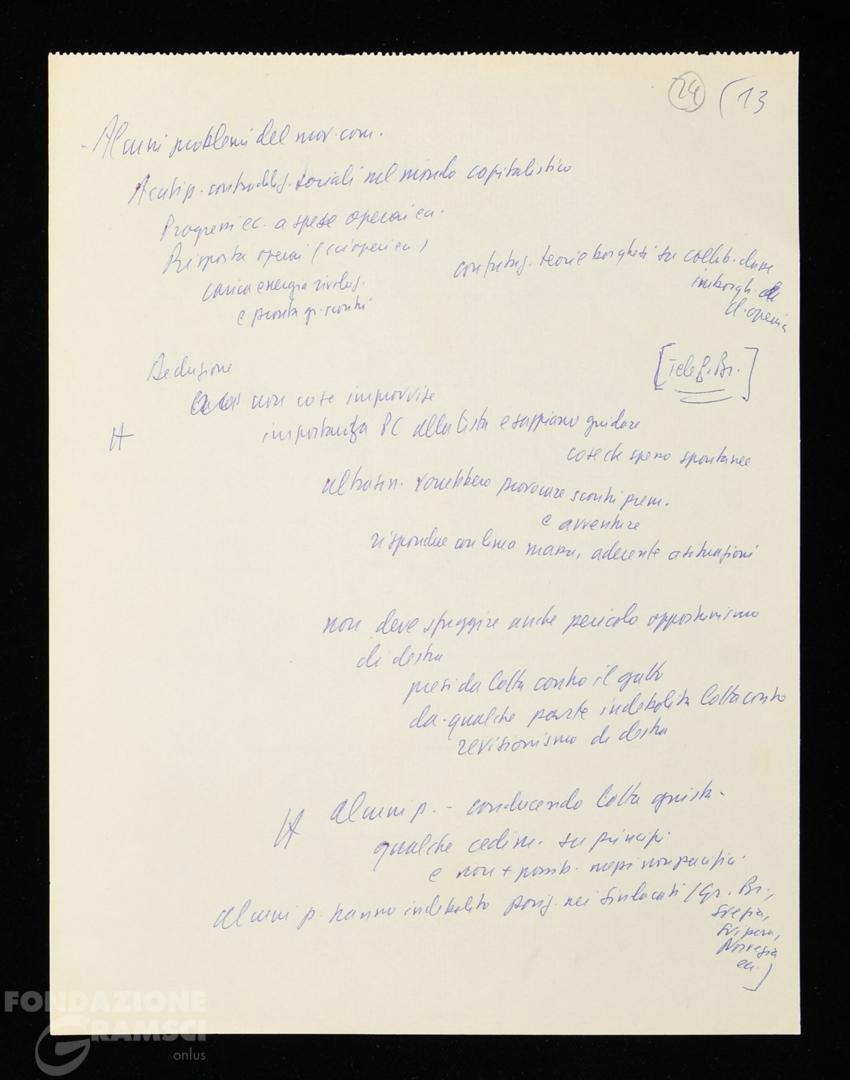 24 (13
- Alcuni problemi del mov. com.
Acutiz. contraddiz. sociali nel mondo capitalistico
Progressi ec. a spese operai ecc.
Risposta operai (scioperi ecc.)
confutaz. teorie borghesi su collab. classe
imborgh. di
cl. operaia
carica energia rivoluz.
e pronta gr. scontri
Deduzione
[Tele G. Br.]
non cose improvvise
H
importanza PC alla testa e sappiano guidare
cose che spesso spontanee
ultrasin. vorrebbero provocare scontri prem.
e avventure
rispondere con linea massa, aderente a situazioni
non deve sfuggire anche pericolo opportunismo
di destra
presi da lotta contro il
da qualche parte indebolita lotta contro
revisionismo di destra
H alcuni p. - conducendo lotta giusta -
qualche cedim. su principi
e non + possib. mezzi non pacifici
alcuni p. hanno indebolito posiz. nei sindacati (Gr. Br.,
Svezia,
Svizzera,
Norvegia
ecc.)
FONDAZIONE
GRAMSCI
onlus